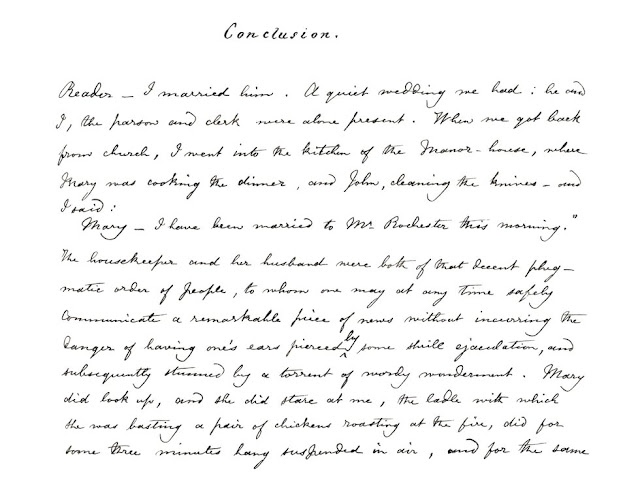 Conclusion.
Reader — I married him. A quiet wedding we had: he and
I, the parson and clerk were alone present. When we got back
from church, I went into the kitchen of the Manor-house, where
Mary was cooking the dinner, and John, cleaning the knives — and
I said:
Mary — I have been married to Mr Rochester this morning."
The housekeeper and her husband were both of that decent phleg-
matic order of people, to whom one may at any time safely
communicate a remarkable piece of news without incurring the
danger of having one's ears pierced by some shrill ejaculation, and
subsequently stunned by a torrent of wordy wonderment. Mary
did look up, and she did stare at me, the ladle with which
she was basting a pair of chickens roasting at the fire, did for
some three minutes hang suspended in air, and for the same